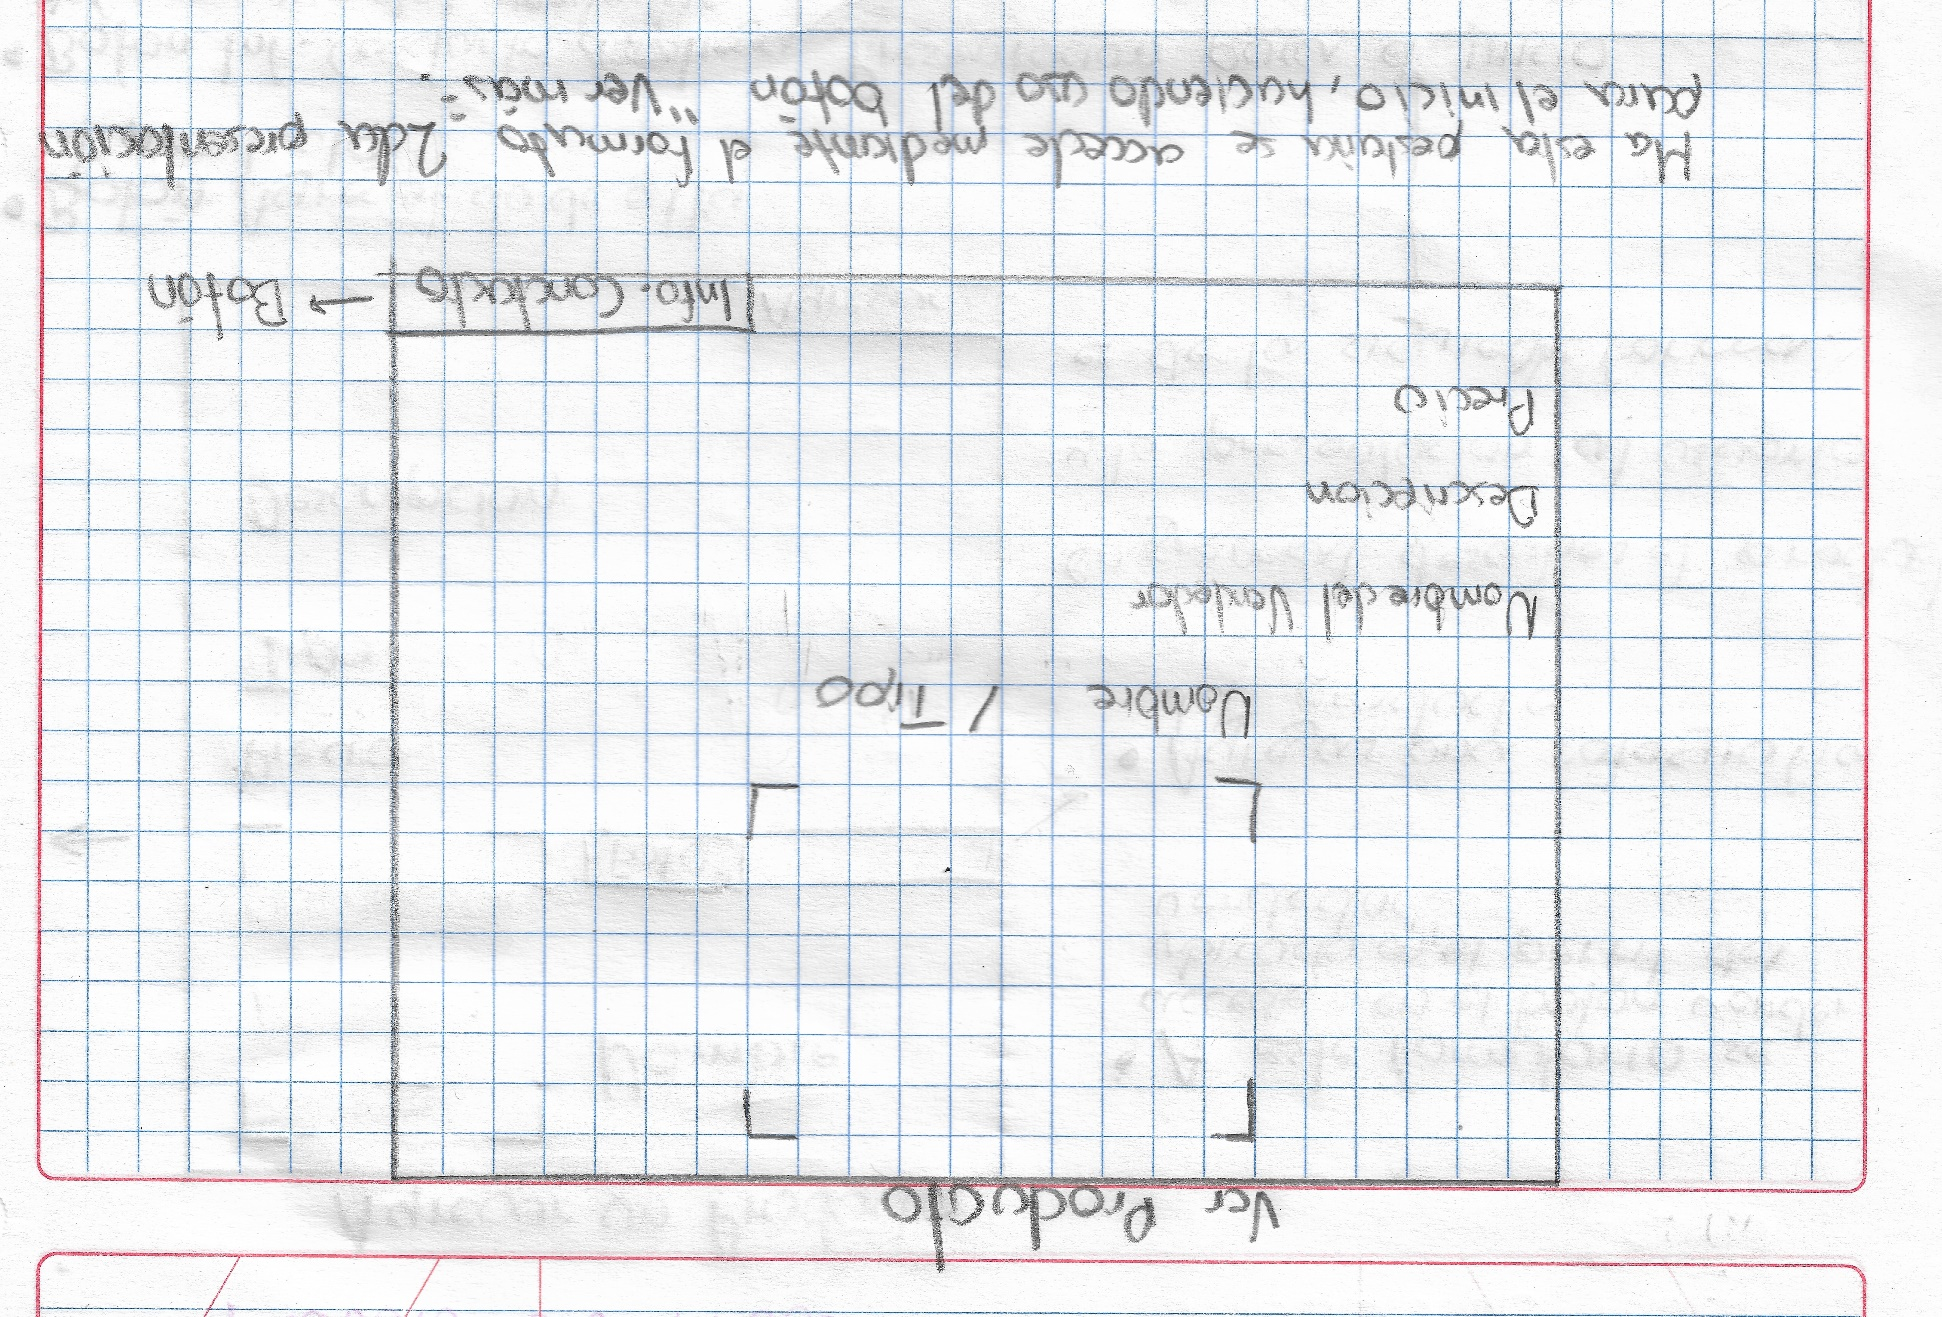 Ver Producto
Nombre / Tipo
Nombre del Vendedor
Descripcion
Precio
Info. Contacto → Botón
Ha esta pestaña se accede mediante el formato 2da presentación
para el inicio, haciendo uso del botón "Ver más".